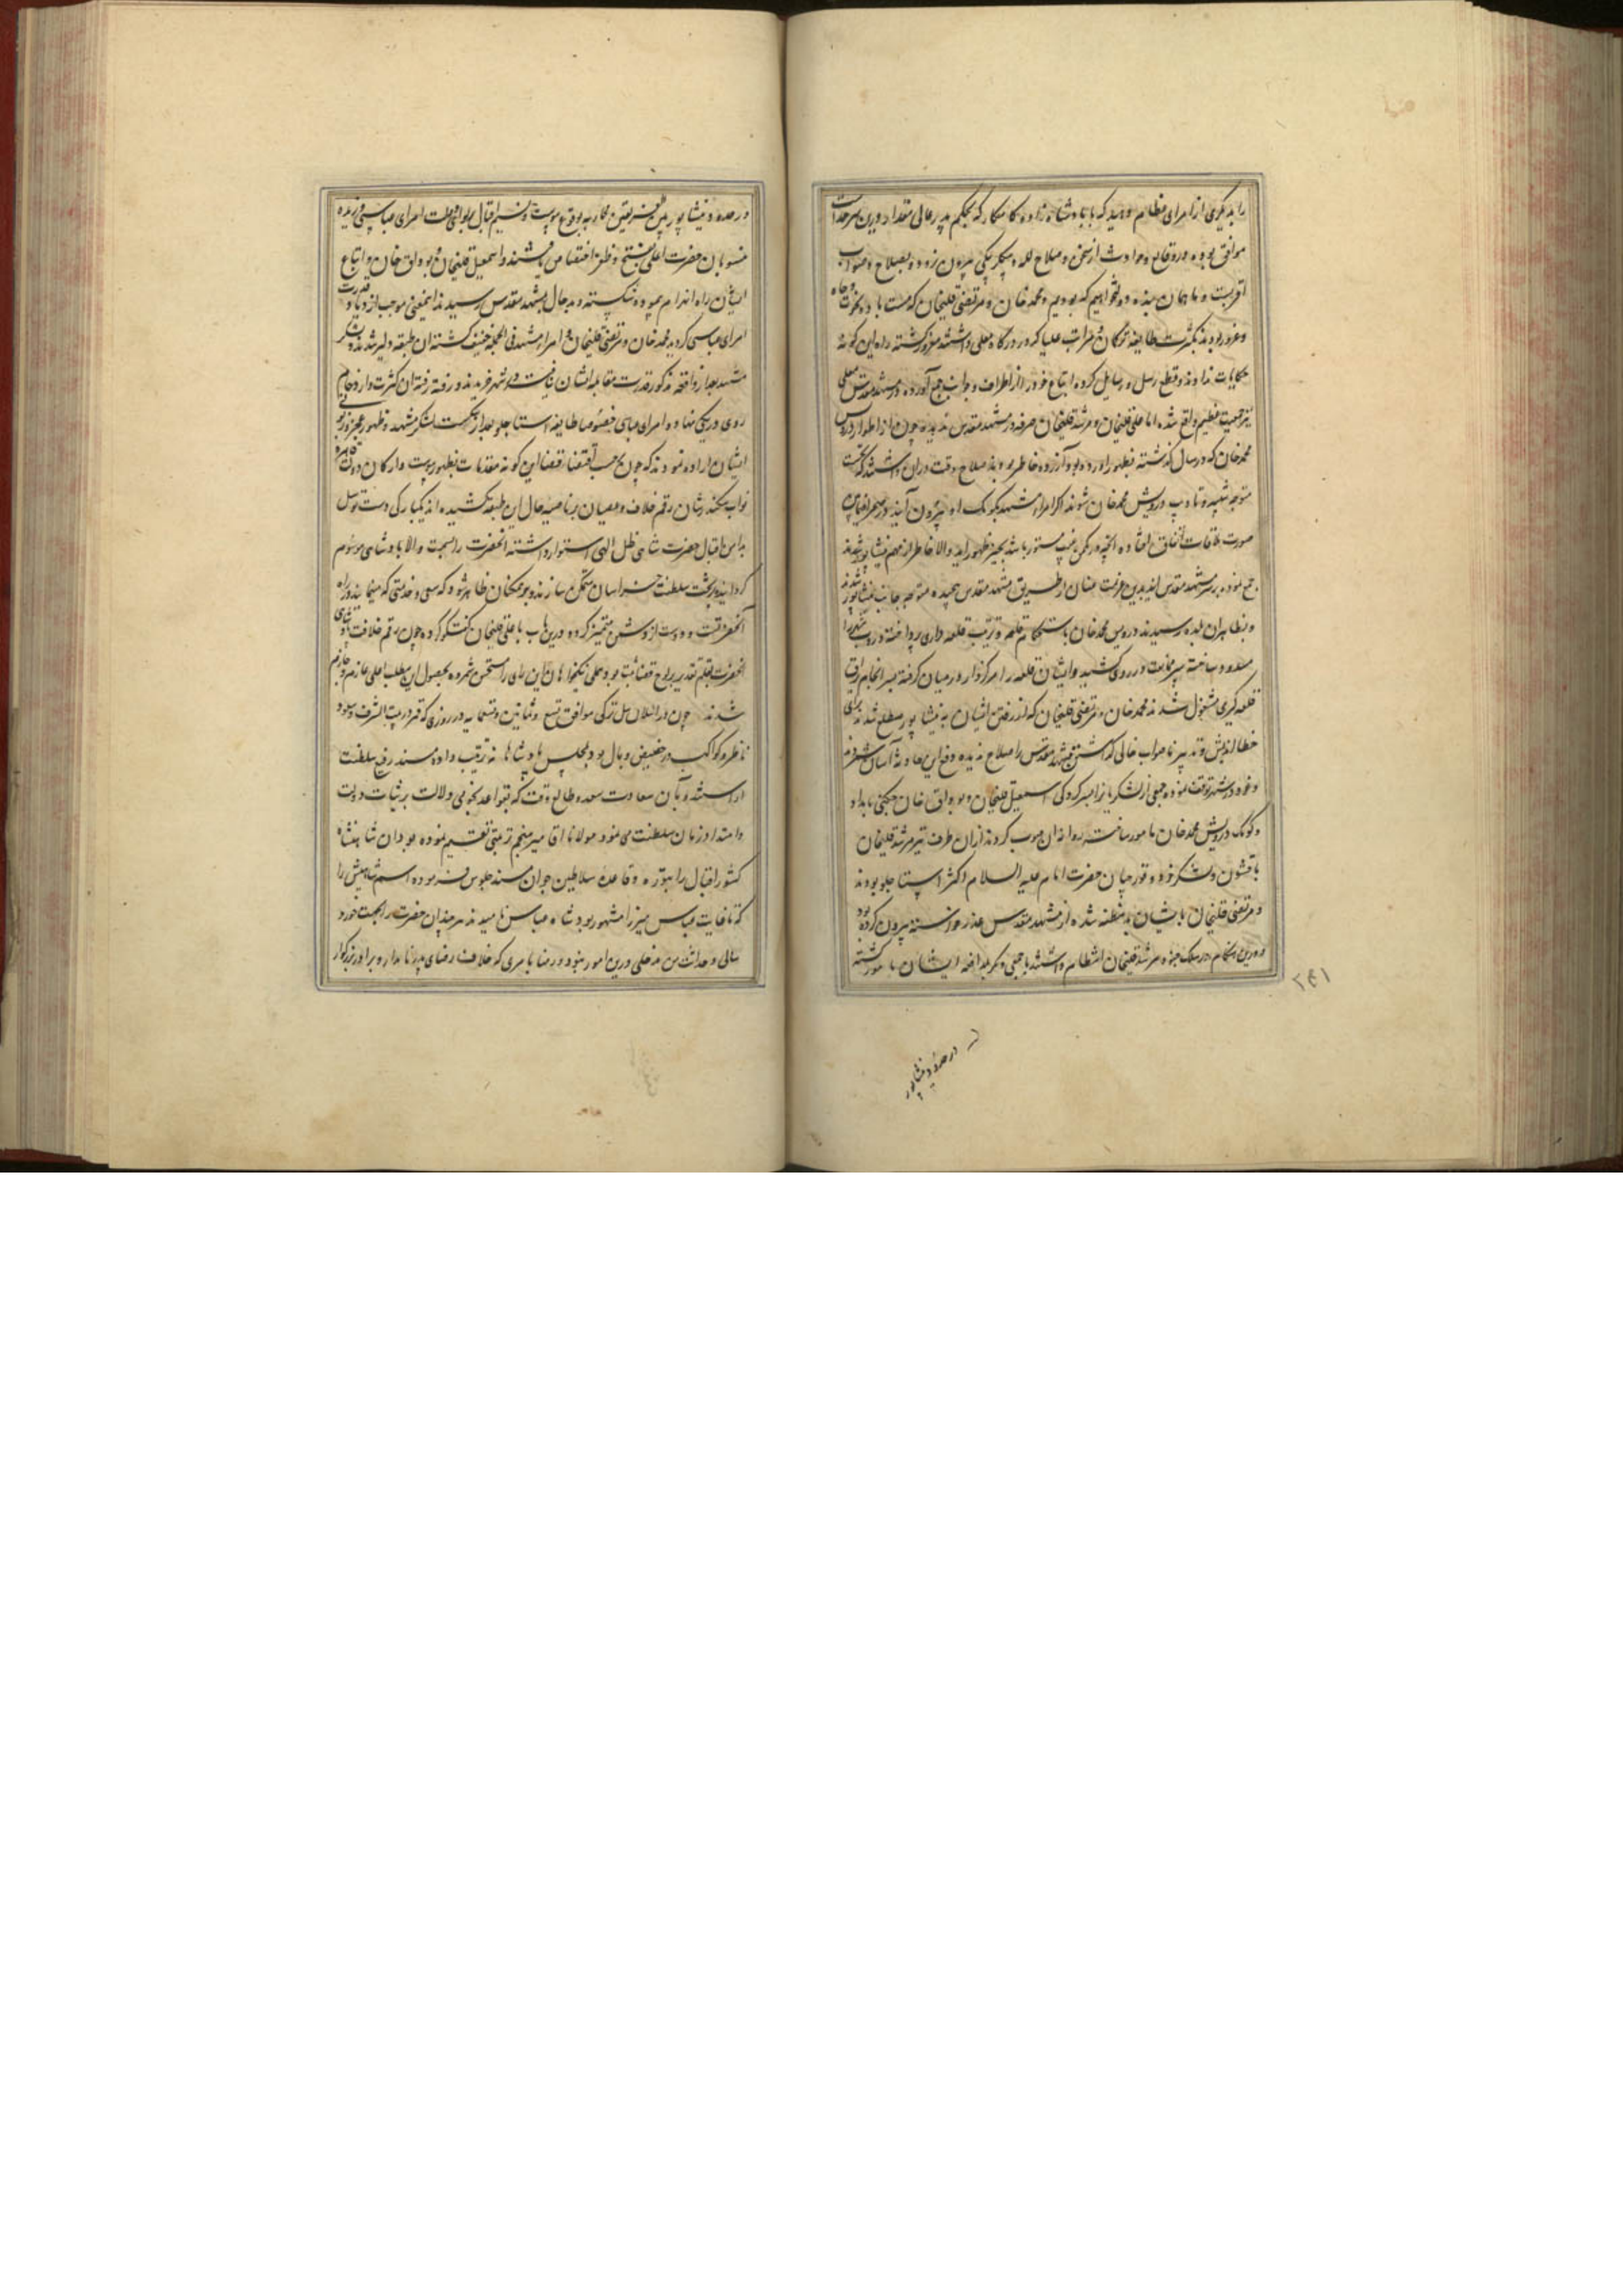 را بدیگری از امرای عظام دهید که با پادشاه زاده کامکار که بحکم پدر عالی مقدار درین سرحدات
موافق بوده در وقایع و حوادث از سخن و صلاح لله و بیگلربیگی بیرون نرود بصلاح و صواب
اقربست و ما همان بنده و دولتخواهیم که بودیم محمد خان و مرتضی قلیخان که مست باده نخوت و جاه
و غرور بودند بکثرت طایفه ترکمان و مراتب علیا که در درگاه معلی داشتند مغرور گشته راه این گونه
حکایات ندادند و قطع رسل و رسایل کرده اتباع خود را از اطراف و جوانب جمع آورده در مشهد مقدس معلی
نیز جمعیت عظیم واقع شد اما علیقلیخان و مرشد قلیخان صرفه در مشهد مقدس ندیده چون از اطوار درویش
محمد خان که در سال گذشته بظهور آورده بود آزرده خاطر بودند صلاح وقت در آن داشتند که نخست
متوجه تنبیه و تأدیب درویش محمد خان شوند اگر امراء مشهد بکومک او بیرون آیند در صحرا
صورت ملاقات اتفاق افتاده آنچه در مکمن غیب مستور باشد بحیز ظهور آید والا خاطر از مهم نیشابور
جمع نموده بر سر مشهد مقدس آیند بدین عزیمت عنان از طریق مشهد مقدس پیچیده متوجه جانب نیشابور شدند
و بظاهر آن بلده رسیدند درویش محمد خان باستحکام قلعه و ترتیب قلعه داری پرداخته دروب شهر را
مسدود ساخته سپر ممانعت در روی کشید و ایشان قلعه را مرکزوار در میان گرفته بسرانجام یراق
قلعه گیری مشغول شدند محمد خان و مرتضی قلیخان که از رفتن ایشان به نیشابور مطلع شدند برای
خطا اندیش و تدبیر ناصواب خالی گذاشتن مشهد مقدس را صلاح ندیده دفع این حادثه آسان شمردند
و خود در مشهد توقف نموده جمعی از لشکریان را بسرکردگی اسمعیل قلیخان و بوداق خان چگنی بامداد
و کومک درویش محمد خان مأمور ساخته روانه آن صوب کردند از آن طرف نیز مرشد قلیخان
با قشون و لشکر خود و قورچیان حضرت امام علیه السلام که اکثر استاجلو بودند
و مرتضی قلیخان بایشان بدمظنه شده از مشهد مقدس عذر خواسته بیرون کرده بود
و درین هنگام در سلک جنود مرشد قلیخان انتظام داشتند با جمعی دیگر بمدافعه ایشان مأمور گشته
۲۴۱
در حدود نیشابور
در حدود نیشابور بین الفریقین محاربه بوقوع پیوست و نسیم اقبال بر لوای دولت امرای عباسی وزیده
منسوبان حضرت اعلی بفتح و ظفر اختصاص یافتند و اسمعیل قلیخان و بوداق خان و اتباع
ایشان راه انهزام پیموده شکسته و بدحال بمشهد مقدس رسیدند اینمعنی موجب ازدیاد قدرت
امرای عباسی گردید محمد خان و مرتضی قلیخان و امراء مشهد فی الجمله خفیف گشته آن طبقه دلیر شدند و لشکر
مشهد بعد از واقعه مذکور قدرت مقابله ایشان نیافت در شهر خزیدند و رفته رفته آن کثرت و ازدحام
روی در کمی نهاد و امرای عباسی خصوصا طایفه استاجلو بعد از شکست لشکر مشهد و ظهور عجز و زبونی
ایشان اراده نمودند که چون بحسب اقتضاء قضا این گونه مقدمات بظهور پیوست و ارکان دولت قاهره
نواب سکندر شأن رقم خلاف و عصیان بر ناصیه حال این طبقه کشیده اند یکبارگی دست توسل
بدامن اقبال حضرت شاهی ظل الهی استوار داشته آنحضرت را بسمت والای پادشاهی موسوم
گردانیده بر تخت سلطنت خراسان متمکن سازند و بر همکنان ظاهر شود که سعی و خدمتی که مینمایند در راه
آنحضرتست و دوست از دشمن متمیز گردد درین باب با علیقلیخان گفتگو کرده چون رقم خلافت و پادشاهی
آنحضرت بقلم تقدیر بر لوح قضا ثبت بود علی نیکخواهان این رای را مستحسن شمرده بحصول این مطلب اعلی عازم و جازم
شدند چون در اثنای سال ترکی موافق تسع و ثمانین و تسعمایه در روزی که قمر در بیت الشرف و سعود
ناظر و کواکب در حضیض وبال بود مجلس پادشاهانه ترتیب داده مسند رفیع سلطنت
آراستند و بآن سعادت سعد و طالع وقت که بقواعد نجومی دلالت بر ثبات دولت
و امتداد زمان سلطنت می نمود مولانا آقا میر منجم ترتیبی تقسیم نموده بود آن شاهنشاه
کشور اقبال را بتوره و قاعده سلاطین جوان مسند جلوس فرموده اسم شاهیش را
که تا غایت عباس میرزا مشهور بود شاه عباس نامیدند هر چند آن حضرت را بجهت خورد
سالی و حداثت سن مدخلی درین امور نبود و رضا بامری که خلاف رضای پدر نامدار و برادر بزرگوار